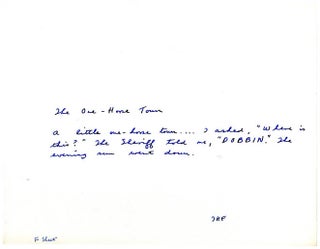 The One-Horse Town
A little one-horse town.... I asked, "Where is
this?" The Sheriff told me, "DOBBIN." The
evening sun went down.